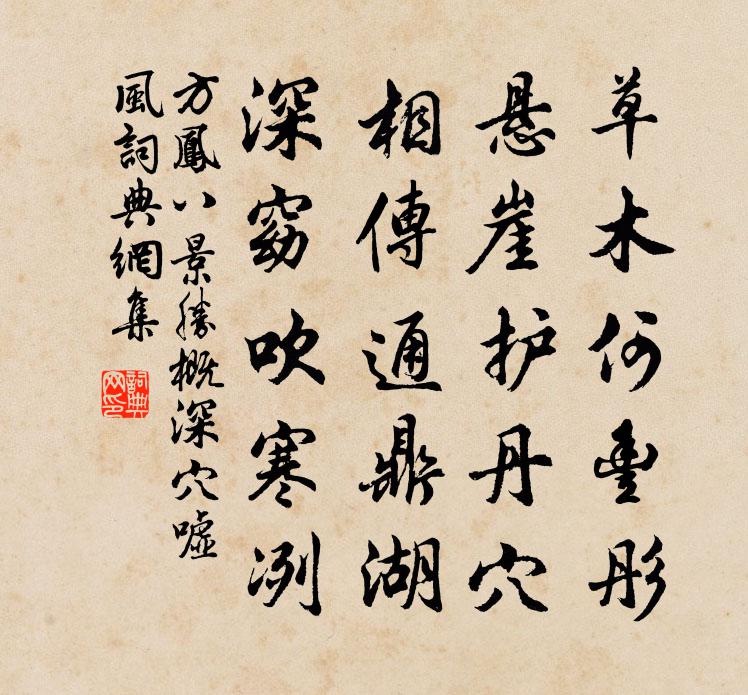 草木何豐彤
悬崖护丹穴
相傳通鼎湖
深窈吹寒冽
方鳳八景勝概深穴噓
風詞典網集
詞典网印